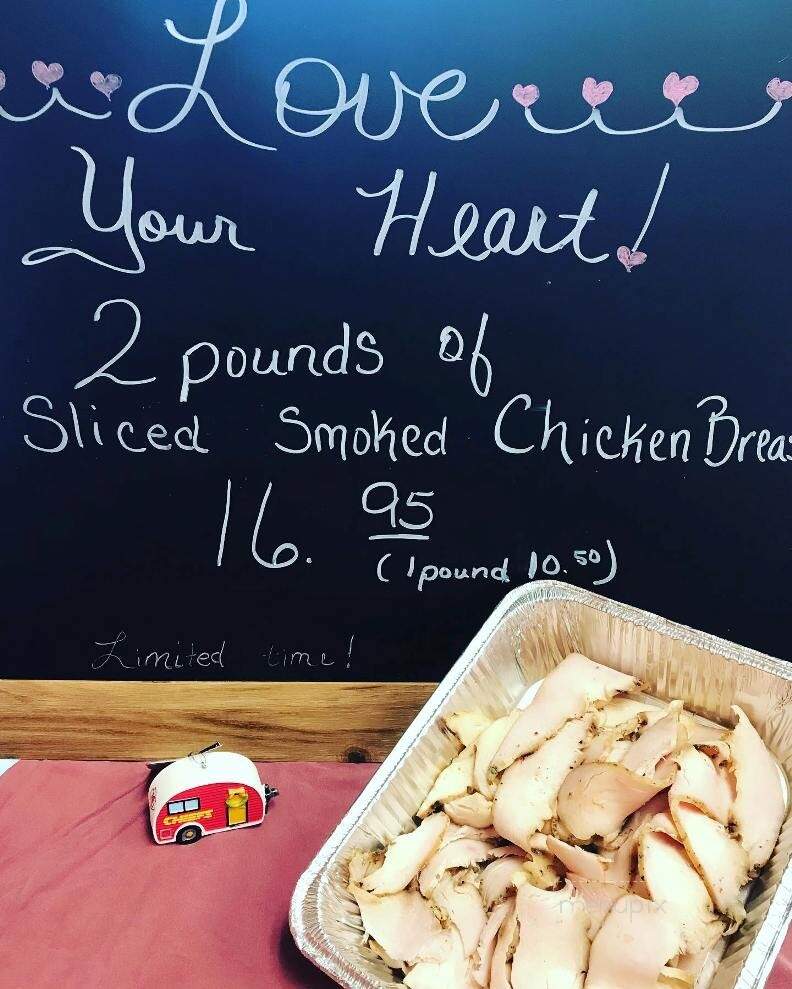 Love
Your Heart!
2 pounds of
Sliced Smoked Chicken Breas
16. 95
(1 pound 10.50)
Limited time!
CHIEFS
menupix